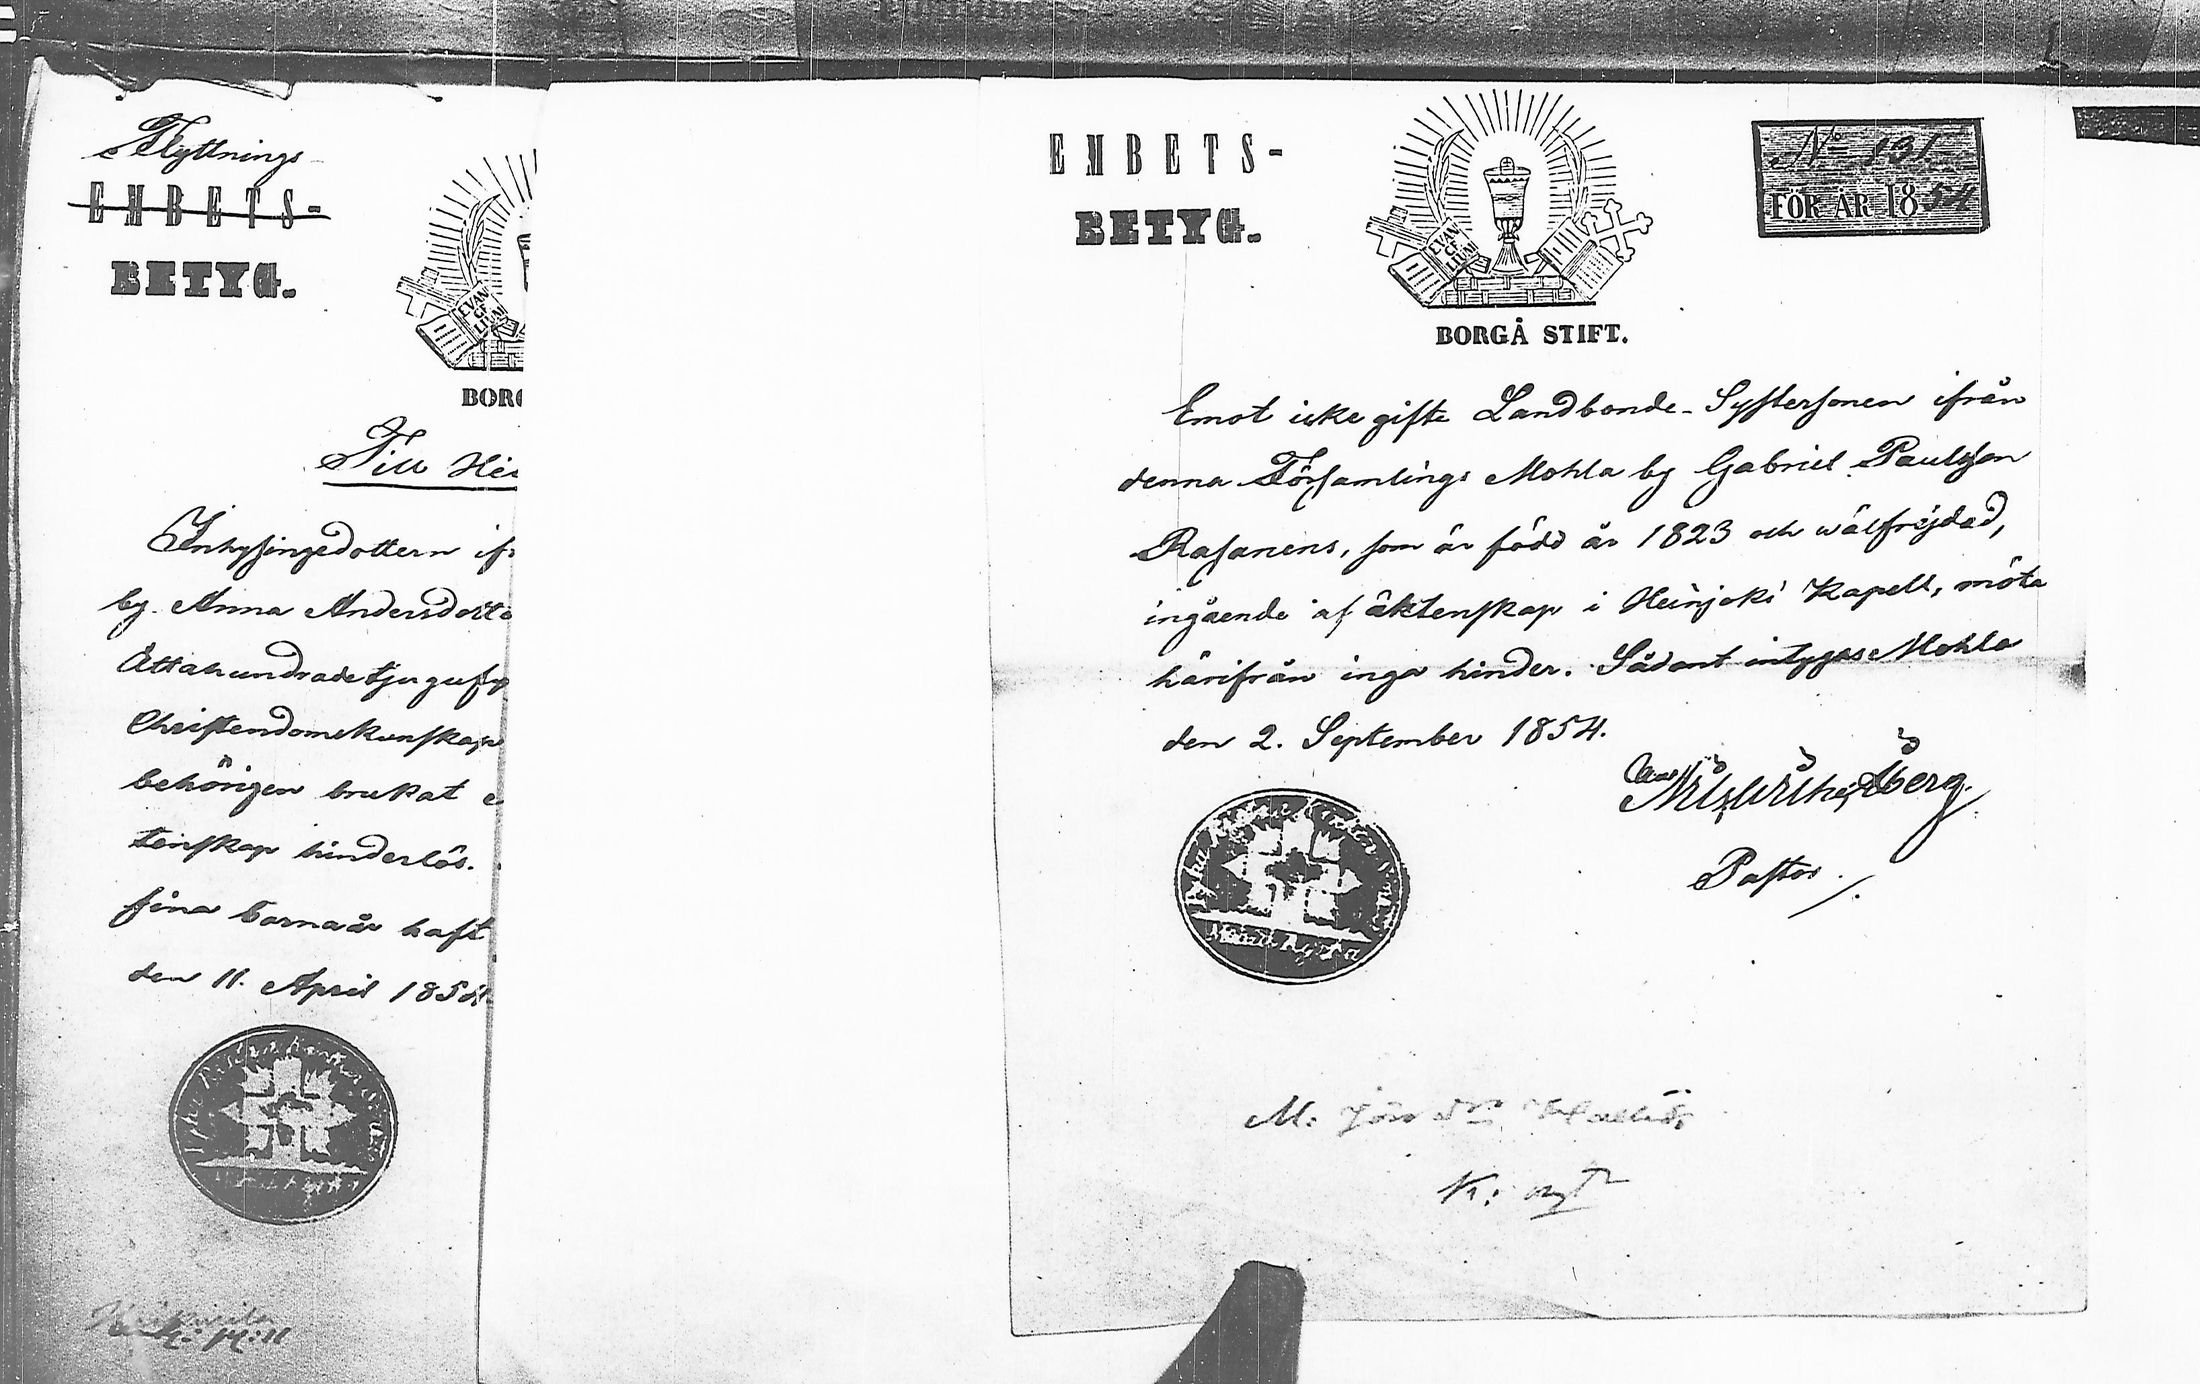 Flyttnings-
EMBETS-
BETYG.
BORG
Till Hei
Inhysingedottern ifr
by. Anna Andersdotte
Åttahundradetjugufy
Christendomskunskap
behörigen brukat
tenskap hinderlös.
sina barnaår haft
den 11. April 1854
EMBETS-
BETYG.
EVAN
GE
LIUM
BORGÅ STIFT.
No 131.
FÖR ÅR 1854
Emot icke gifte Landbonde-Systersonen ifrån
denna Församlings Mohla by Gabriel Paulsson
Rasanens, som är född år 1823 och wälfrejdad,
ingående af äktenskap i Heinjoki Kapell, möta
härifrån inga hinder. Sådant intygas: Mohla
den 2. September 1854.
Åberg.
Pastor.
Mohla Kyrka
M:
K: